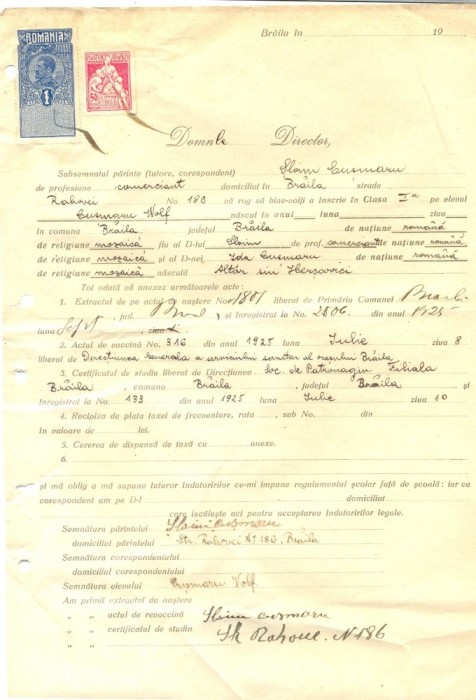 ROMANIA
1
Brăila în 19
Domnule Director,
Subsemnatul părinte (tutore, corespondent) Sloim Cusmaru
de profesiune comerciant domiciliat în Brăila strada
Rahovei No 186 vă rog să bine-voiți a înscrie în Clasa I-a pe elevul
Cusmaru Wolf născut în anul luna ziua
în comuna Brăila județul Brăila de națiune română
de religiune mozaică fiu al D-lui Sloim de prof. comerciant de națiune română
de religiune mozaică și al D-nei, Ida Cusmaru de națiune română
de religiune mozaică născulă Herșcovici
Tot odată să anexez următoarele acte:
1. Extractul de pe actul de naștere No 1801 liberat de Primăria Comunei Braila
jud. și înregistrat la No 2806 din anul 1925
luna Sept ziua
2. Actul de vaccină No. 316 din anul 1925 luna Iulie ziua 8
liberat de Direcțiunea Generala a serviciului sanitar al orașului Brăila
3. Certificatul de studiu liberat de Direcțiunea Soc. de Patronagiu Filiala
Brăila, comuna Brăila, județul Brăila și
înregistrat la No 133 din anul 1925 luna Iulie ziua 10
4. Recipisa de plata taxei de frecuentare, rata sub No. din
în valoare de lei.
5. Cererea de dispensă de taxă cu anexe.
6.
și mă oblig a mă supune tuturor îndatoririlor ce-mi impune regulamentul școlar față de școală: iar ca
corespondent am pe D-l domiciliat
care iscălește aci pentru acceptarea îndatoririlor legale.
Semnătura părintelui Sloim Cusmaru
domiciliul părintelui Str. Rahovei No 186, Brăila
Semnătura corespondentului
domiciliul corespondentului
Semnătura elevului Cușmaru Wolf
Am primit extractul de naștere
„ „ actul de revoccină Sloim Cusmaru
„ „ certificatul de studiu Str Rahovei N 186
„ „